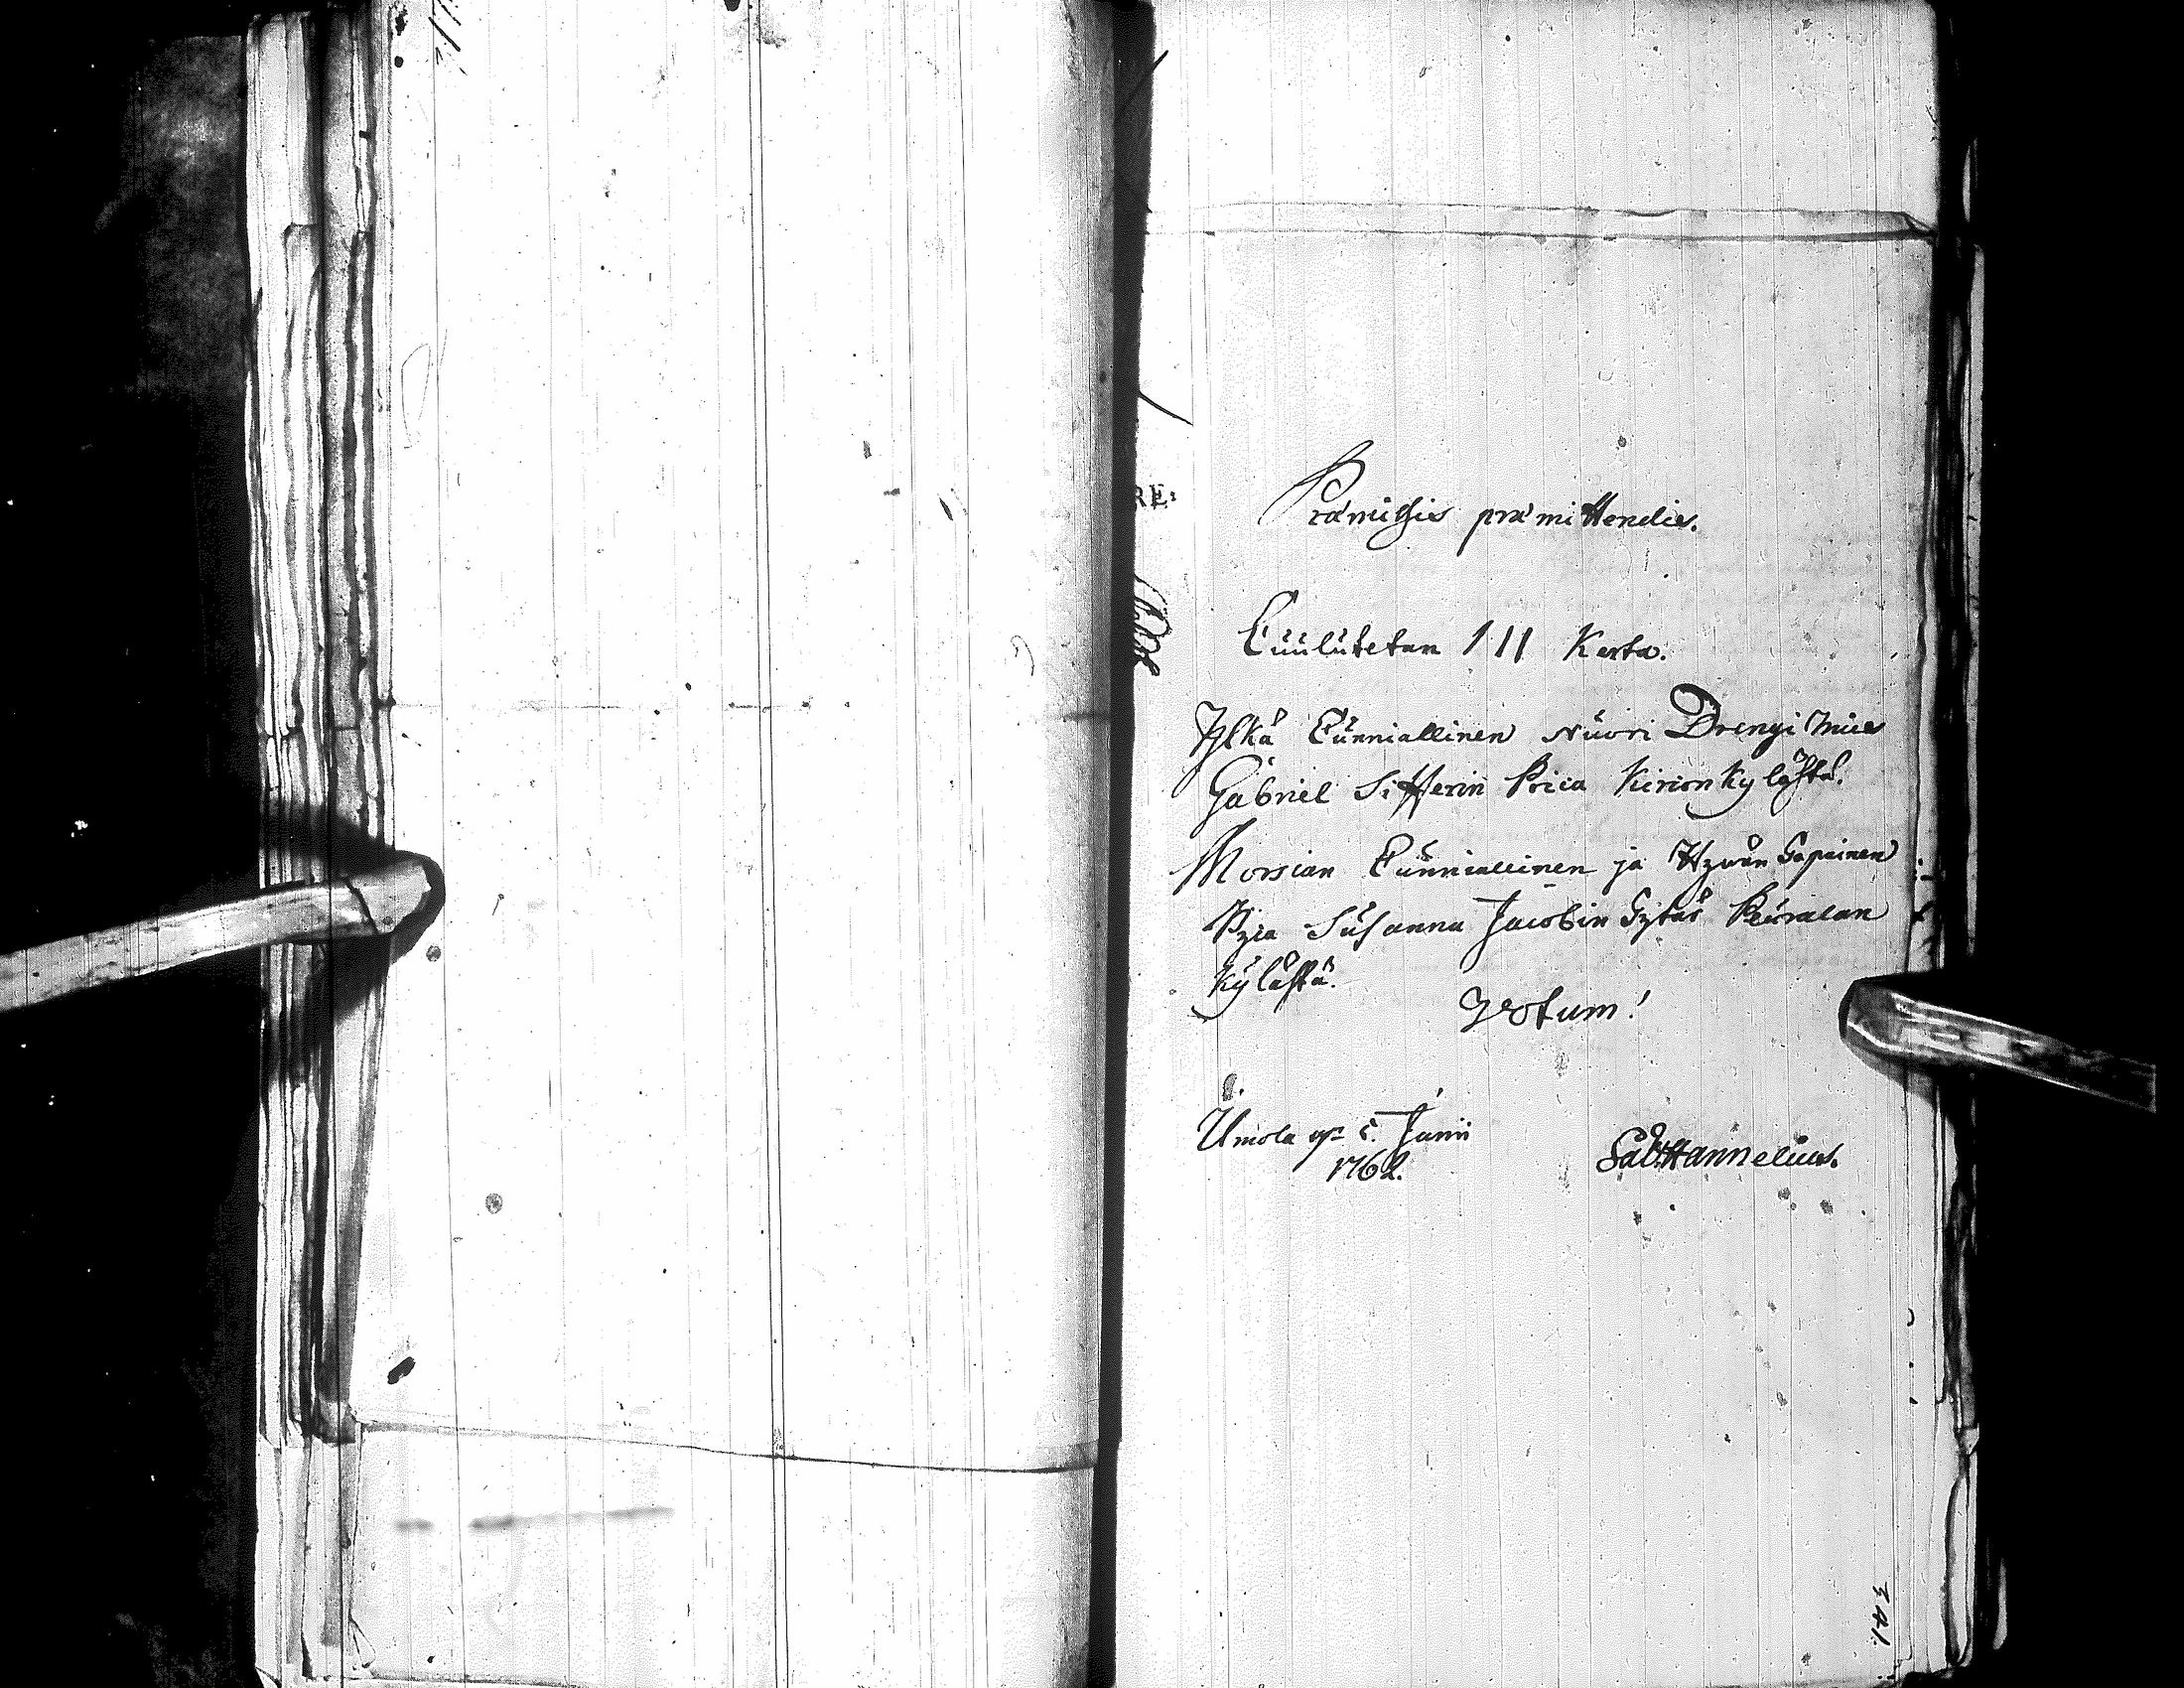 Præmissis præmittendis.
Cuulutetan III Kerta.
Ylkä Cunniallinen Nuori Drengi Mies
Gabriel Sifferin Poica Kirion Kylästä.
Morsian Cunniallinen ja Hywän Sapainen
Pyia Susanna Jacobin Tytär Peuralan
Kylästä.
Votum!
Umola 5. Junii
1762.
Hannelius.
341.
RE: